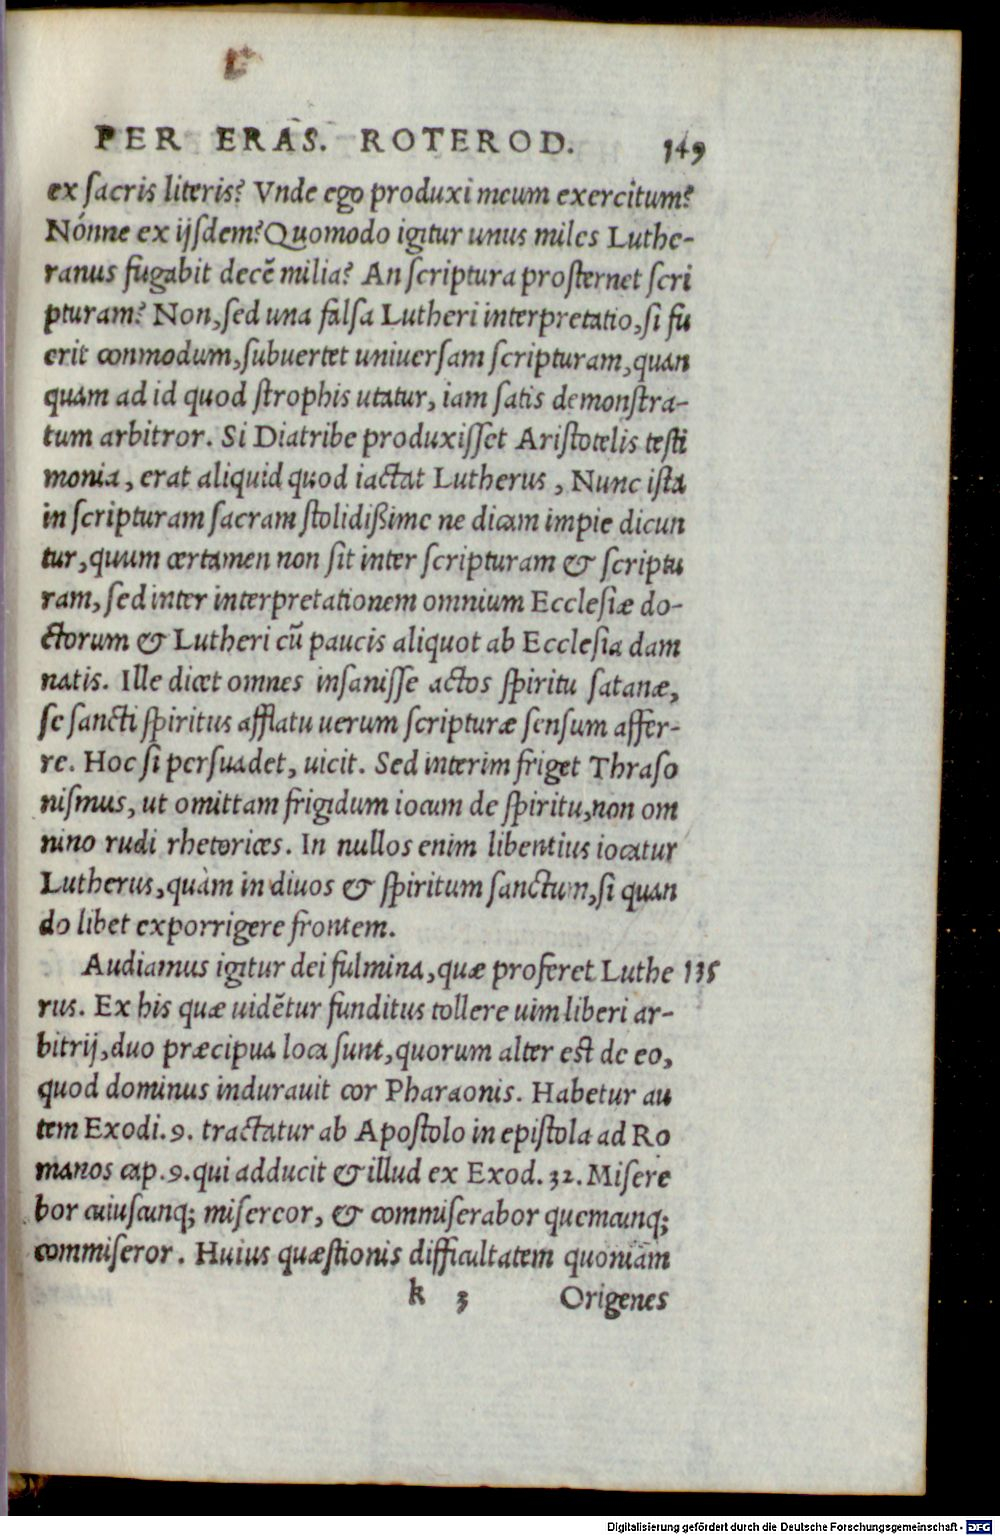 PER ERAS. ROTEROD. 149
ex sacris literis? Vnde ego produxi meum exercitum?
Nónne ex ijsdem? Quomodo igitur unus miles Luthe-
ranus fugabit decẽ milia? An scriptura prosternet scri
pturam? Non, sed una falsa Lutheri interpretatio, si fu
erit conmodum, subuertet uniuersam scripturam, quan
quam ad id quod strophis utatur, iam satis demonstra-
tum arbitror. Si Diatribe produxisset Aristotelis testi
monia, erat aliquid quod iactat Lutherus, Nunc ista
in scripturam sacram stolidißime ne dicam impie dicun
tur, quum certamen non sit inter scripturam & scriptu
ram, sed inter interpretationem omnium Ecclesiæ do-
ctorum & Lutheri cũ paucis aliquot ab Ecclesia dam
natis. Ille dicet omnes insanisse actos spiritu satanæ,
se sancti spiritus afflatu uerum scripturæ sensum affer-
re. Hoc si persuadet, uicit. Sed interim friget Thraso
nismus, ut omittam frigidum iocum de spiritu, non om
nino rudi rhetorices. In nullos enim libentius iocatur
Lutherus, quàm in diuos & spiritum sanctum, si quan
do libet exporrigere frontem.
Audiamus igitur dei fulmina, quæ proferet Luthe 135
rus. Ex his quæ uidẽtur funditus tollere uim liberi ar-
bitrij, duo præcipua loca sunt, quorum alter est de eo,
quod dominus indurauit cor Pharaonis. Habetur au
tem Exodi. 9. tractatur ab Apostolo in epistola ad Ro
manos cap. 9. qui adducit & illud ex Exod. 32. Misere
bor cuiuscunq; misereor, & commiserabor quemcunq;
commiseror. Huius quæstionis difficultatem quoniam
k 3 Origenes
Digitalisierung gefördert durch die Deutsche Forschungsgemeinschaft - DFG